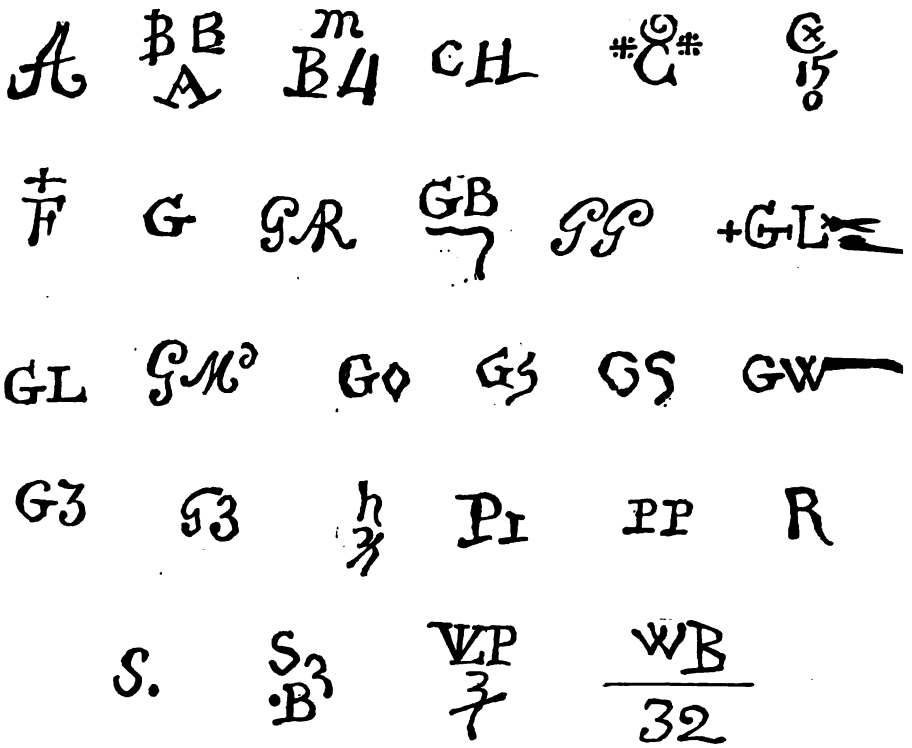 A B B A m B 4 C H C C 15 0
+ F G G AR GB 7 GG +GL
GL GM GO GS GS GW
G3 G3 h PI PP R
S. S 3 .B VLP 3 WB 32